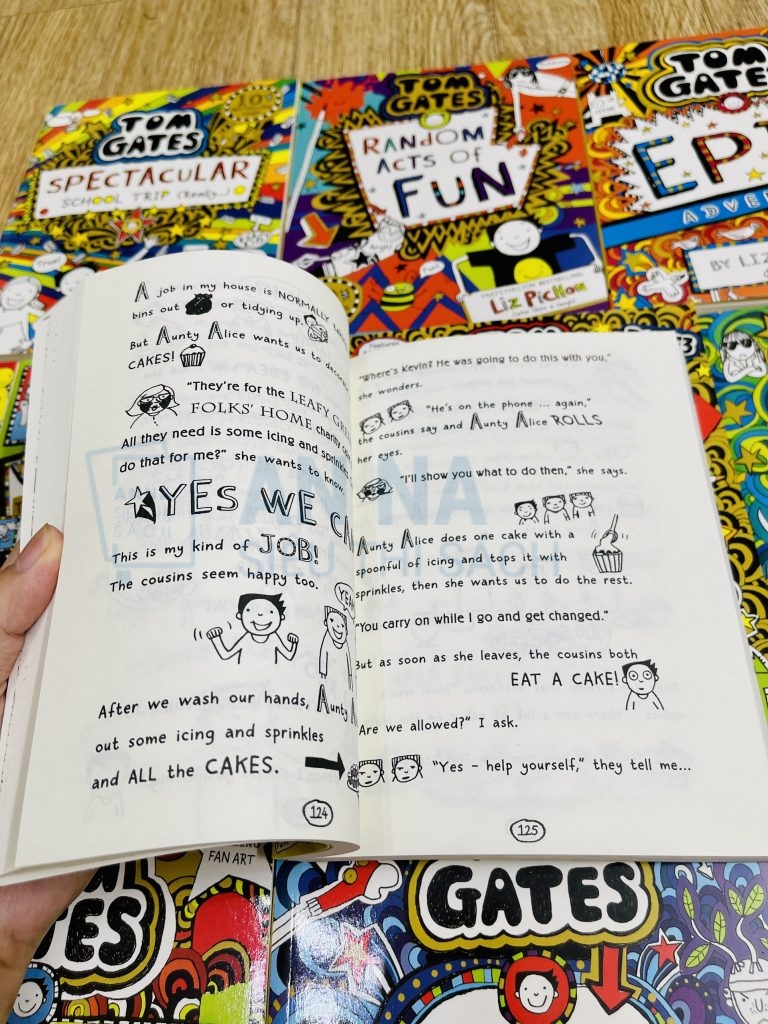 TOM
GATES
SPECTACULAR
SCHOOL TRIP (Really...)
TOM
GATES
RANDOM
ACTS OF
FUN
MULTI-MILLION BESTSELLING
LIZ PICHON
TOM
GATES
BY LIZ
A job in my house is NORMALLY
bins out or tidying up.
But Aunty Alice wants us to
CAKES!
"They're for the LEAFY
FOLKS' HOME charity
All they need is some icing and sprinkles
do that for me?" she wants to know.
YES WE
This is my kind of JOB!
The cousins seem happy too.
After we wash our hands, Aunty
out some icing and sprinkles
and ALL the CAKES.
124
"Where's Kevin? He was going to do this with you,"
she wonders.
"He's on the phone ... again,"
the cousins say and Aunty Alice ROLLS
her eyes.
"I'll show you what to do then," she says.
Aunty Alice does one cake with a
spoonful of icing and tops it with
sprinkles, then she wants us to do the rest.
"You carry on while I go and get changed."
But as soon as she leaves, the cousins both
EAT A CAKE!
Are we allowed?" I ask.
"Yes – help yourself," they tell me...
125
AN NA
SIÊU THỊ SÁCH
FAN ART
GATES